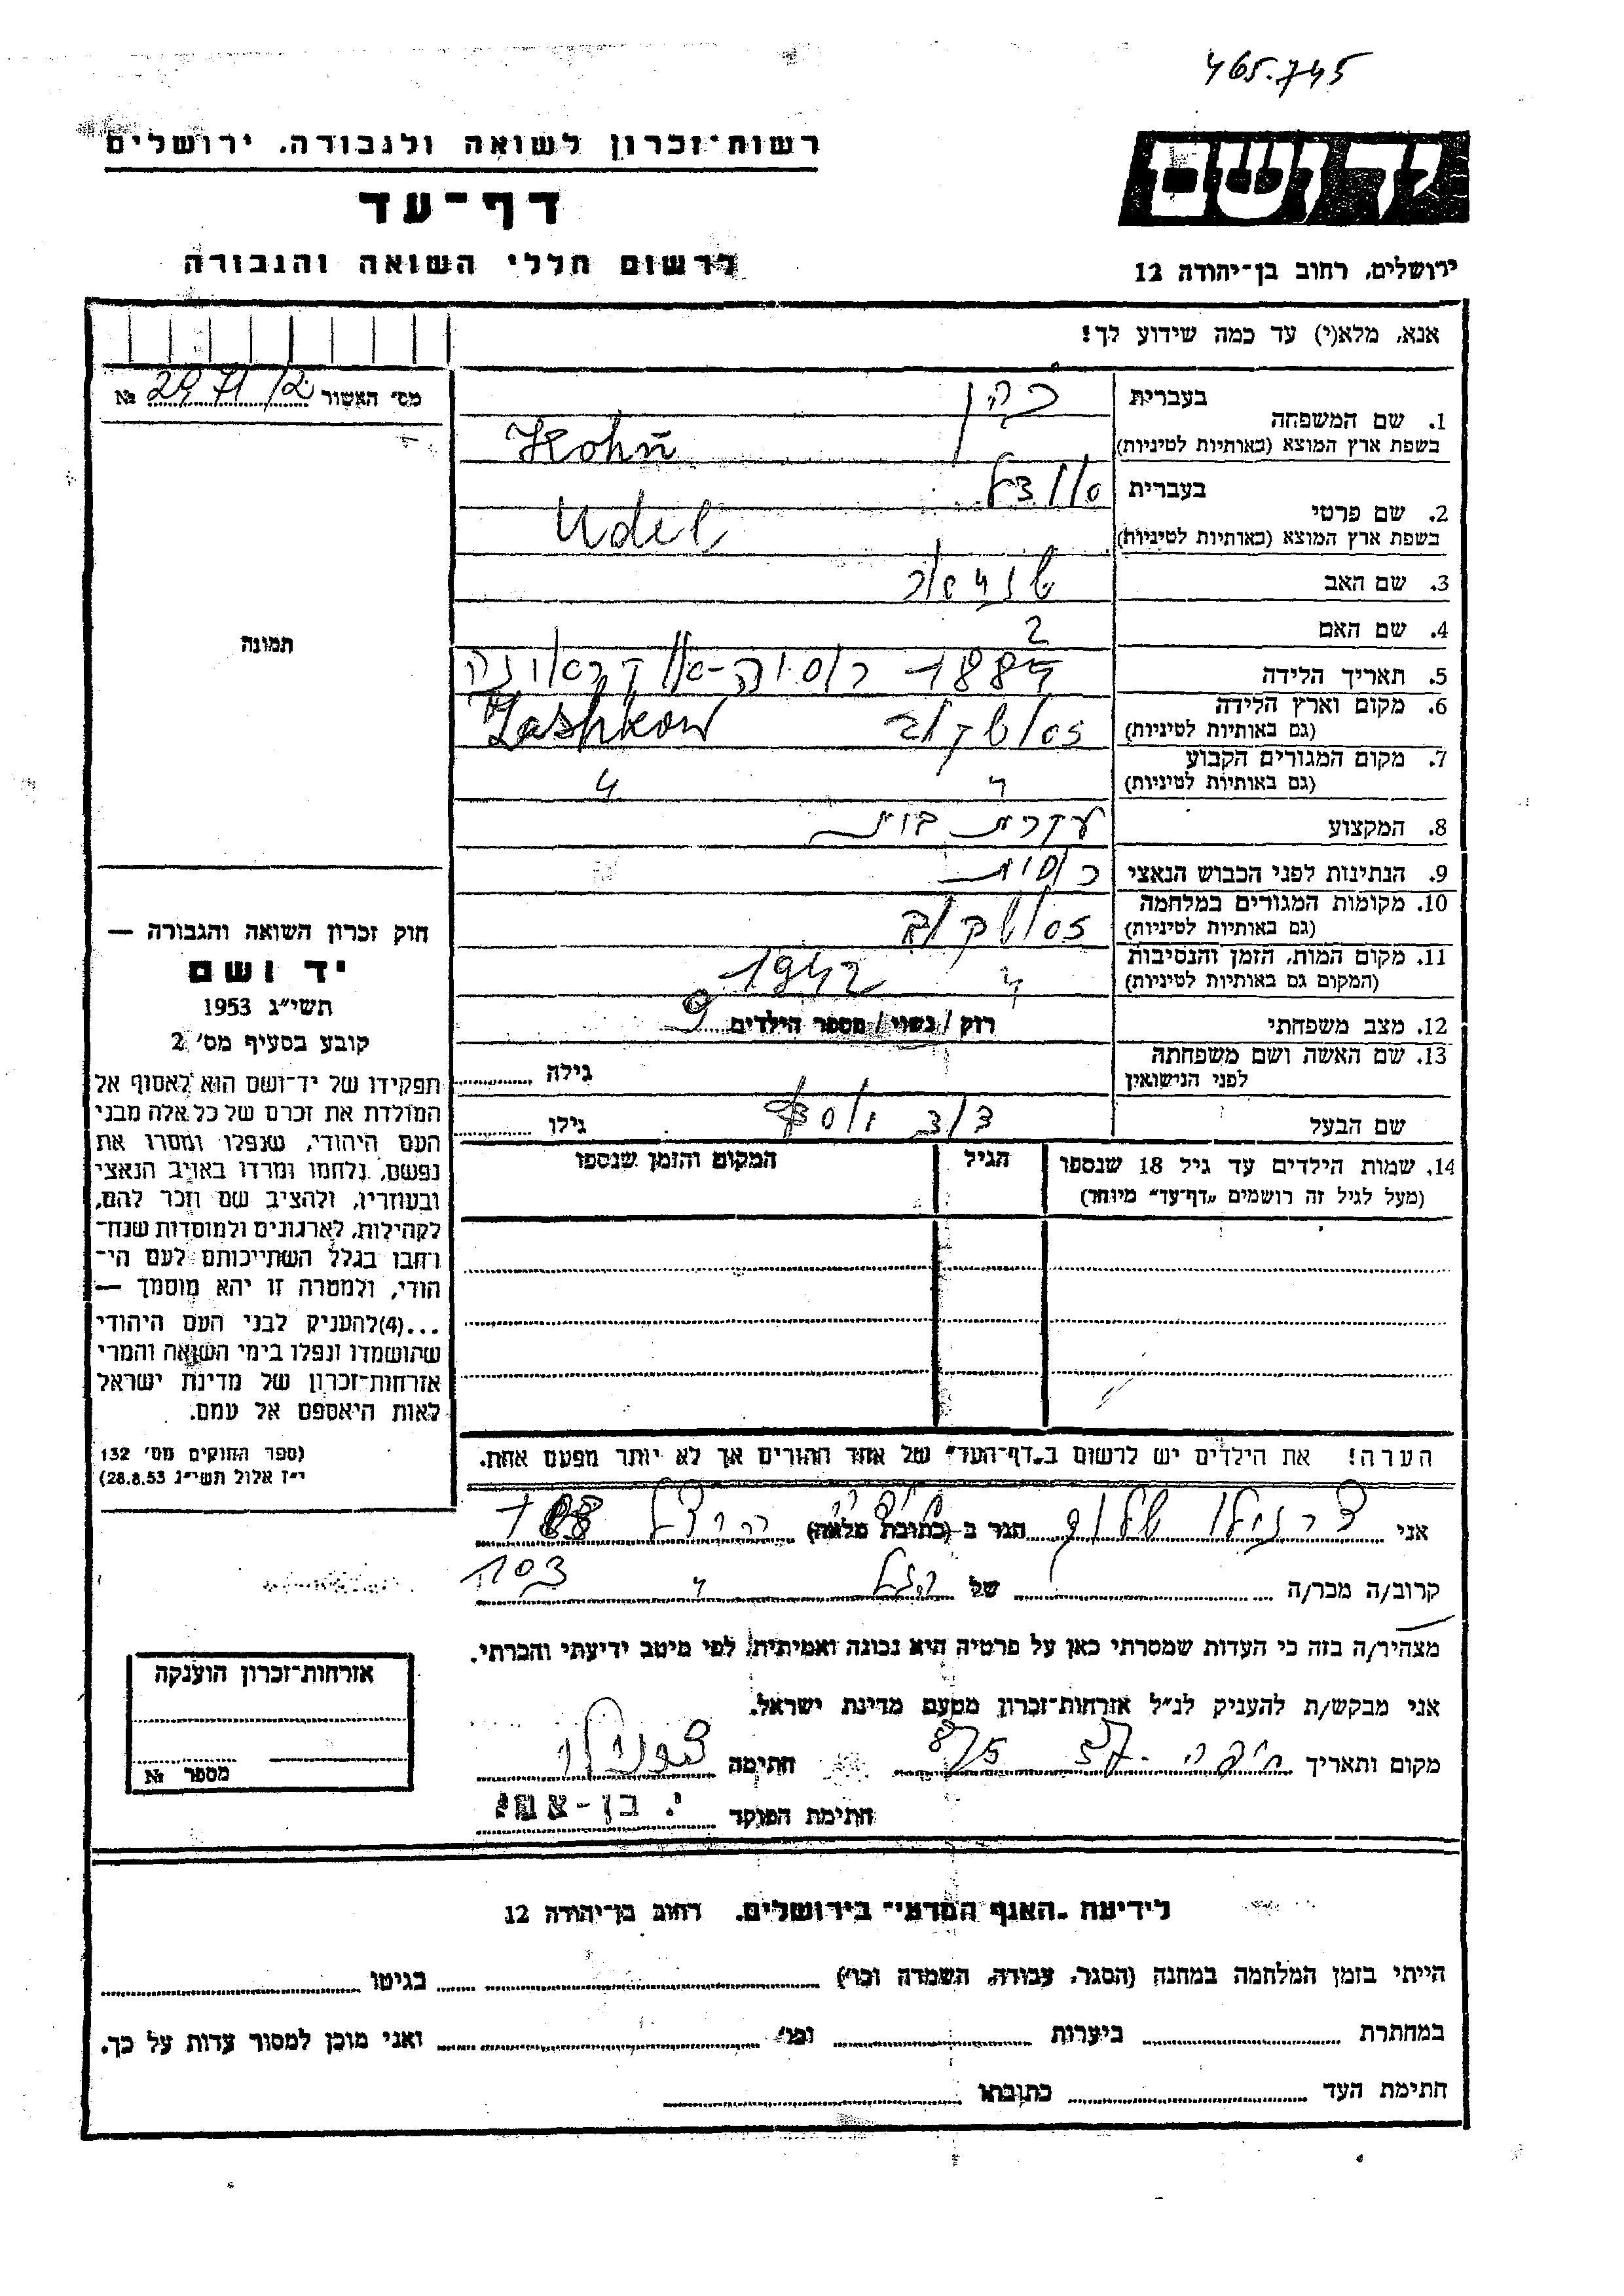 465.745
יד ושם
רשות־זכרון לשואה ולגבורה, ירושלים
דף־עד
לרשום חללי השואה והגבורה
ירושלים, רחוב בן־יהודה 12
אנא, מלא(י) עד כמה שידוע לך!
מס׳ האשור № 2971/2
תמונה
1. שם המשפחה
בעברית כהן
בשפת ארץ המוצא (באותיות לטיניות) Kohn
2. שם פרטי
בעברית
בשפת ארץ המוצא (באותיות לטיניות) Udel
3. שם האב
4. שם האם
5. תאריך הלידה 1884 רוסיה-אוקראינה
6. מקום וארץ הלידה
(גם באותיות לטיניות) Zashkow
7. מקום המגורים הקבוע
(גם באותיות לטיניות)
8. המקצוע עקרת בית
9. הנתינות לפני הכבוש הנאצי רוסית
10. מקומות המגורים במלחמה
(גם באותיות לטיניות)
11. מקום המות, הזמן והנסיבות 1942
(המקום גם באותיות לטיניות)
12. מצב משפחתי רוק / נשוי / מספר הילדים 9
13. שם האשה ושם משפחתה
לפני הנישואין
גילה
שם הבעל
גילו
14. שמות הילדים עד גיל 18 שנספו
(מעל לגיל זה רושמים „דף־עד״ מיוחד)
הגיל
המקום והזמן שנספו
הערה! את הילדים יש לרשום ב„דף־העד״ של אחד ההורים אך לא יותר מפעם אחת.
חוק זכרון השואה והגבורה —
יד ושם
תשי״ג 1953
קובע בסעיף מס׳ 2
תפקידו של יד־ושם הוא לאסוף אל
המולדת את זכרם של כל אלה מבני
העם היהודי, שנפלו ומסרו את
נפשם, נלחמו ומרדו באויב הנאצי
ובעוזריו, ולהציב שם וזכר להם,
לקהילות, לארגונים ולמוסדות שנח־
רחבו בגלל השתייכותם לעם הי־
הודי, ולמטרה זו יהא מוסמך —
...(4)להעניק לבני העם היהודי
שהושמדו ונפלו בימי השואה והמרי
אזרחות־זכרון של מדינת ישראל
לאות היאספם אל עמם.
(ספר החוקים מס׳ 132
י״ז אלול תשי״ג 28.8.53)
אני הגר ב (כתובת מלאה) חיפה הרצל
קרוב/ה מכר/ה של 103
מצהיר/ה בזה כי העדות שמסרתי כאן על פרטיה היא נכונה ואמיתית, לפי מיטב ידיעתי והכרתי.
אני מבקש/ת להעניק לנ״ל אזרחות־זכרון מטעם מדינת ישראל.
מקום ותאריך חיפה חתימה
חתימת הפוקד י. בן-עמי
אזרחות־זכרון הוענקה
מספר №
לידיעת „האגף המדעי״ בירושלים, רחוב בן־יהודה 12
הייתי בזמן המלחמה במחנה (הסגר, עבודה, השמדה וכו׳) בגיטו
במחתרת ביערות וכו׳ ואני מוכן למסור עדות על כך.
חתימת העד כתובתו